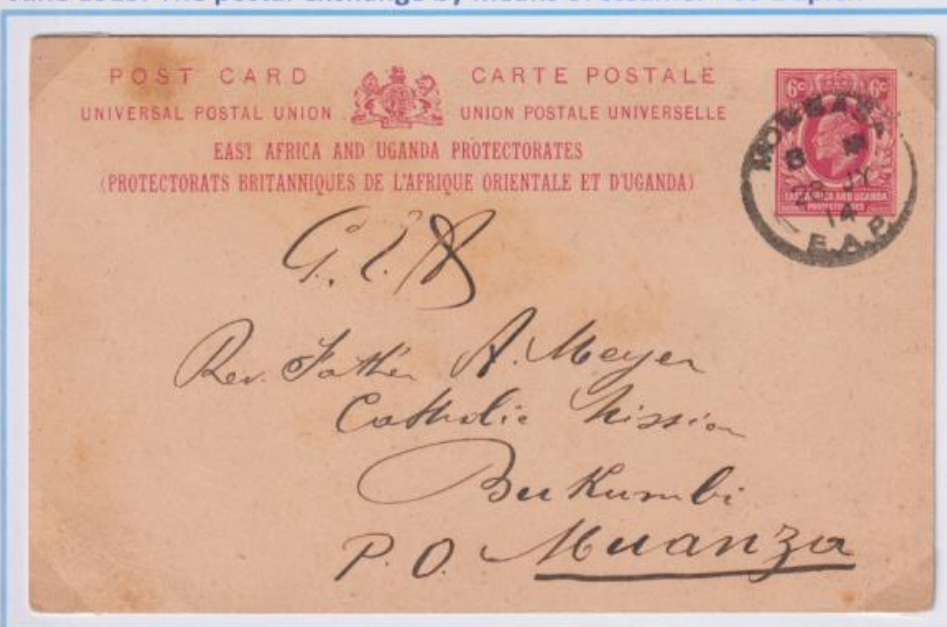 POST CARD CARTE POSTALE
UNIVERSAL POSTAL UNION UNION POSTALE UNIVERSELLE
EAST AFRICA AND UGANDA PROTECTORATES
(PROTECTORATS BRITANNIQUES DE L'AFRIQUE ORIENTALE ET D'UGANDA)
6c 6c
EAST AFRICA AND UGANDA
PROTECTORATES
MOMBASA
JY
14
E.A.P.
Rev. Father A. Meyer
Catholic Mission
Bukumbi
P.O. Muanza